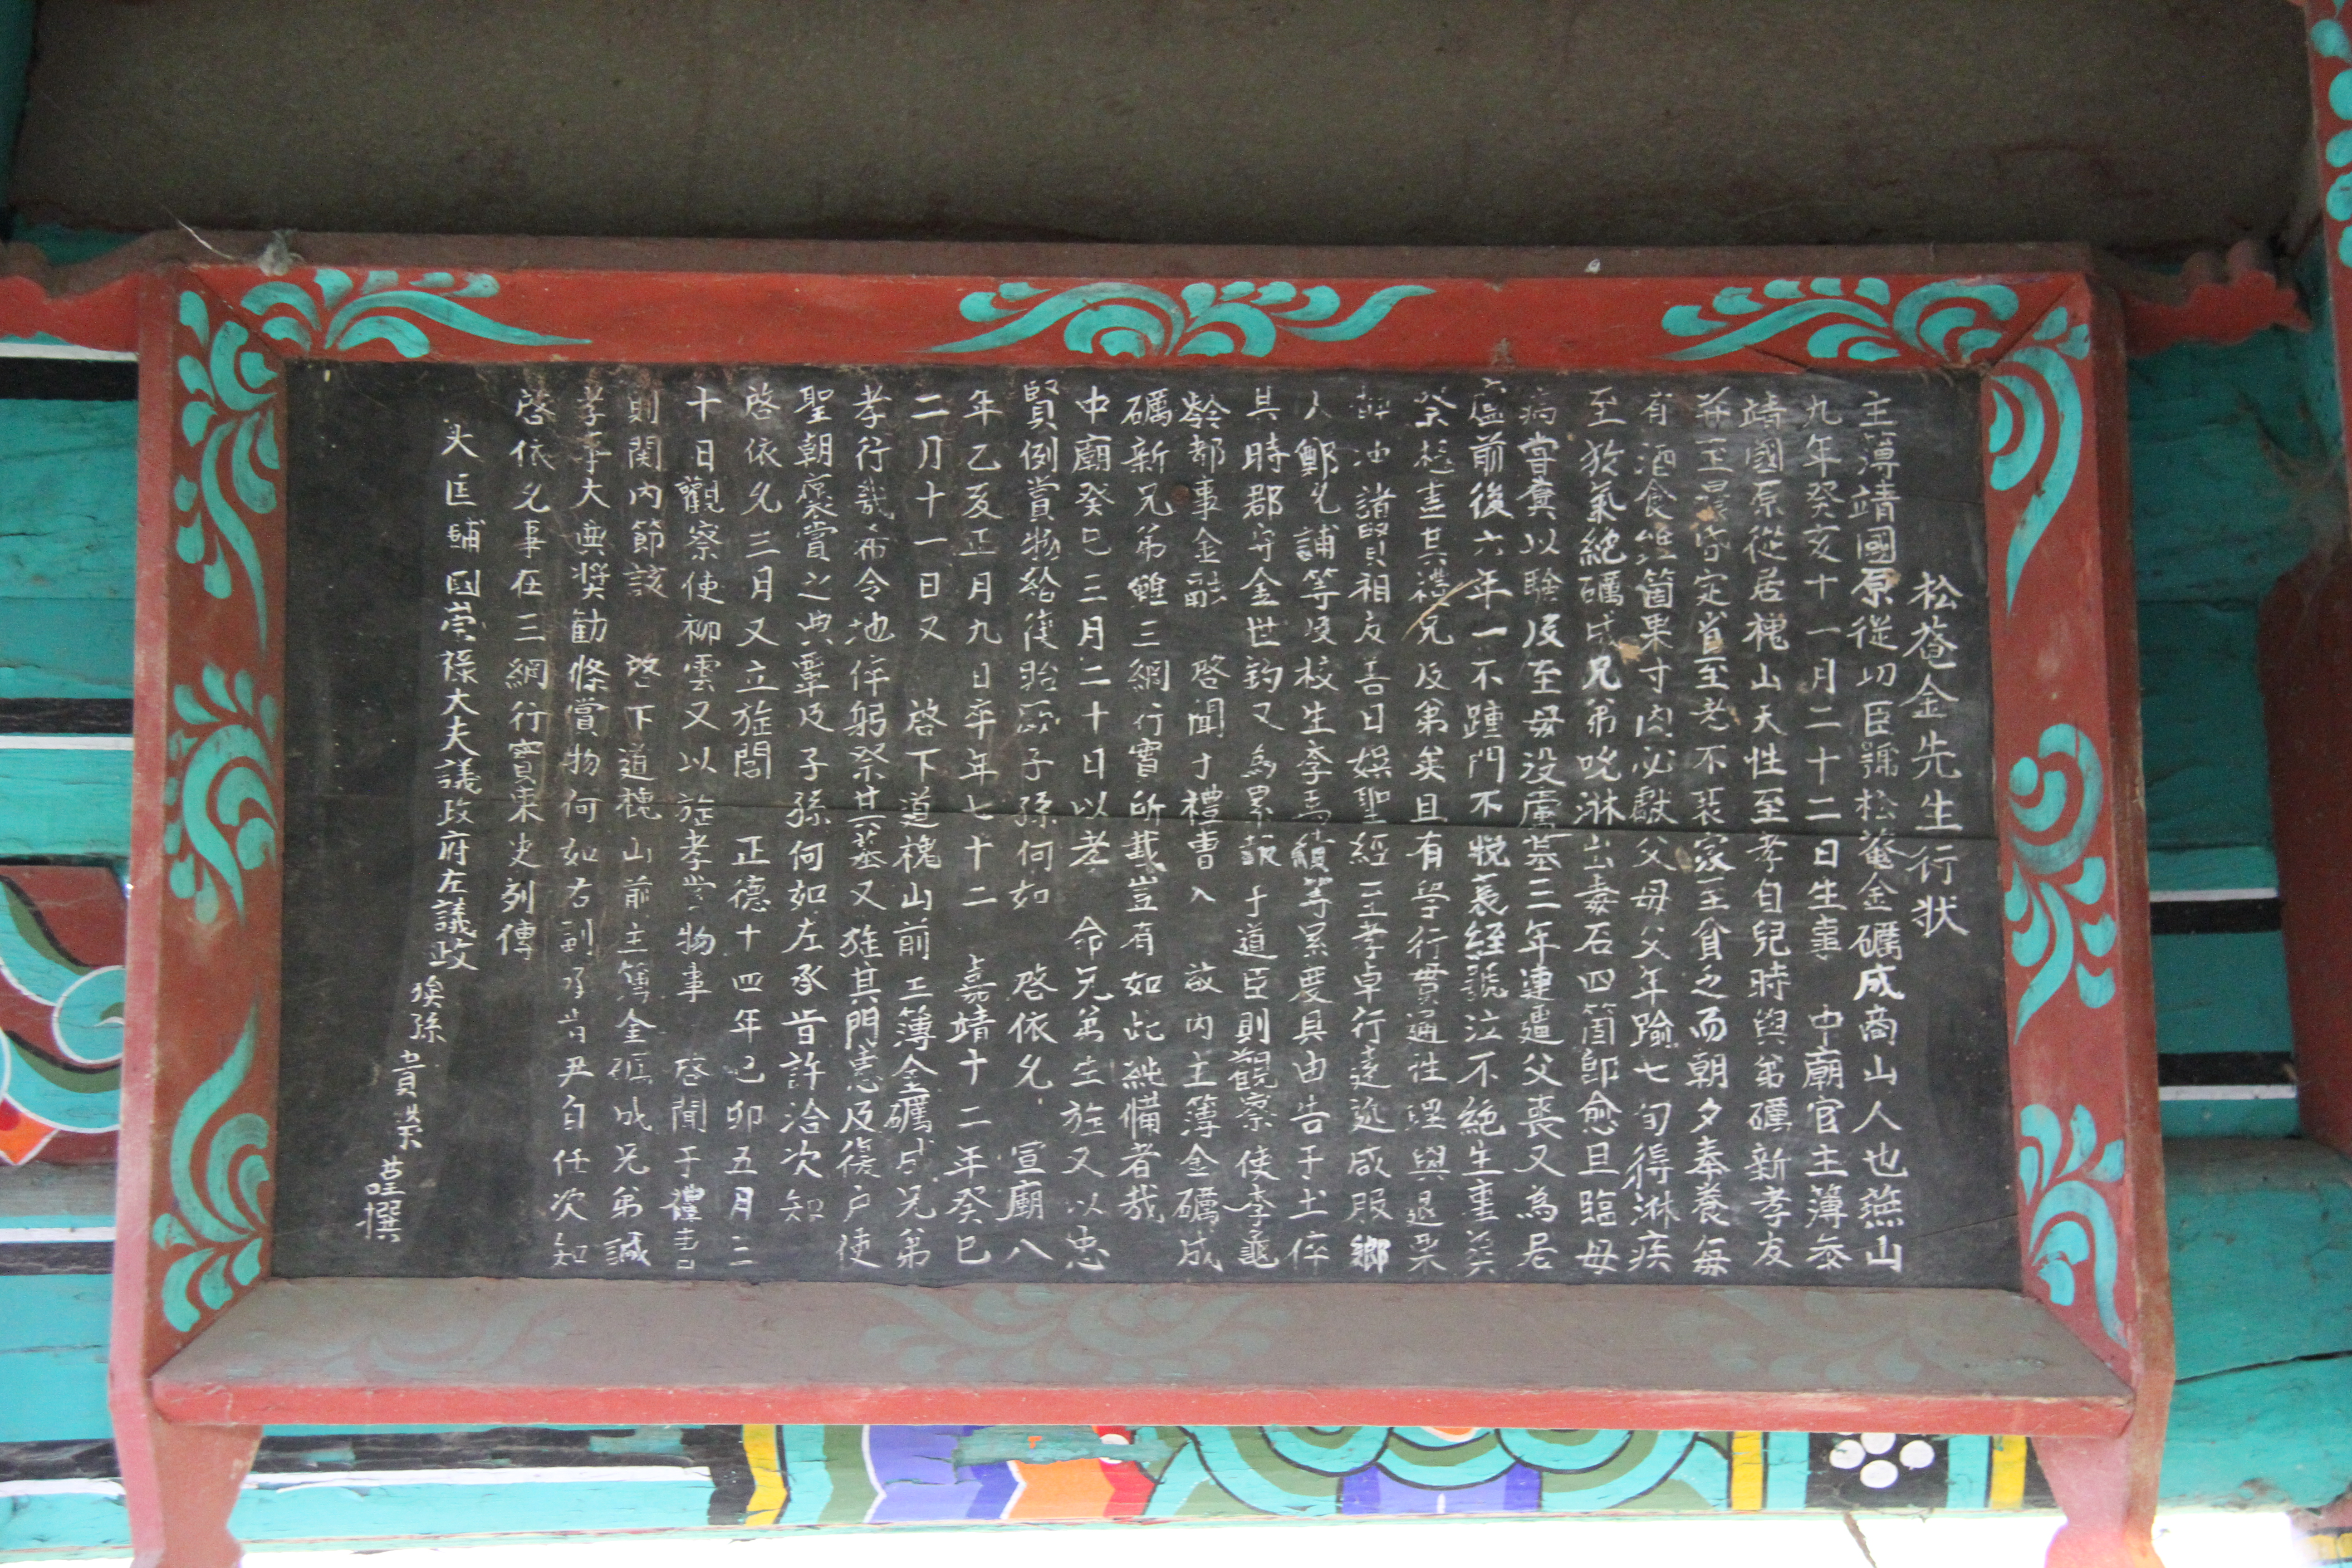 松菴金先生行状
主簿靖國原從功臣號松菴金礪成商山人也燕山
九年癸亥十一月二十二日生事 中廟官主薄叅
靖國原從居槐山天性至孝自兒時與弟礪新孝友
並至晨昏定省至老不衰家至貧乏而朝夕奉養每
有酒食雖箇果寸肉必獻父母父年踰七旬得淋疾
至於氣絶礪成兄弟吮淋出毒石四箇卽愈且臨母
病嘗糞以驗及至母没廬墓三年連遭父喪又為居
廬前後六年一不踵門不悅衰絰號泣不絶生盡
祭盡其禮兄及弟矣且有學行貫通性理與退
冲諸賢相友善日娯聖經至孝卓行遠近咸服鄉
人鄭允誧等及校生李等累度具由告于土倅
其時郡守金世鈞又為累報于道臣則觀察使李龜
齡都事金 啓聞于禮曹入 故内主簿金礪成
礪新兄弟雖三綱行實所載豈有如此純備者哉
中廟癸巳三月二十日以老 命兄弟生旌又以忠
賢例賞物給復貽厥子孫何如 啓依允 宣廟八
年乙亥正月九日卒年七十二 嘉靖十二年癸巳
二月十一日又 啓下道槐山前主簿金礪成兄弟
孝行哉希令地倅躬祭其墓又旌其門憲及復户使
聖朝褒賞之典覃及子孫何如左承旨許洽次知
啓依允三月又立旌閭 正德十四年己卯五月三
十日觀察使柳雲又以旌孝賞物事 啓聞于禮曹
則関内節該 啓下道槐山前主簿金礪成兄弟誠
孝事大典奬勸條賞物何如右副承旨尹自任次知
啓依允事在三綱行實東史列傳
大匡輔國崇祿大夫議政府左議政
孫貴榮謹撰